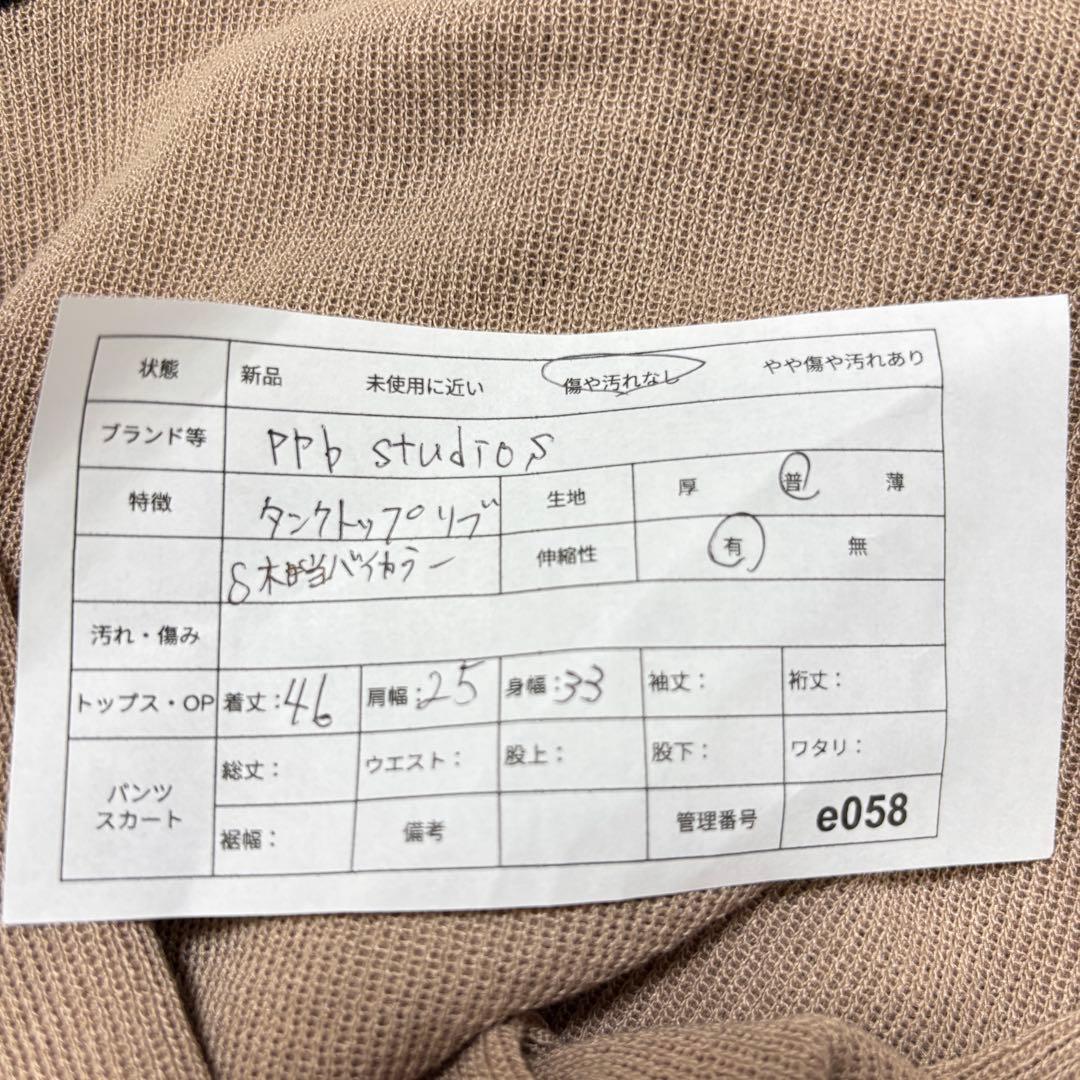 状態 新品 未使用に近い 傷や汚れなし やや傷や汚れあり
ブランド等 PPb studios
特徴 タンクトップリブ 生地 厚 普 薄
S 相当バイカラー 伸縮性 有 無
汚れ・傷み
トップス・OP 着丈:46 肩幅:25 身幅:33 袖丈: 裄丈:
パンツ スカート 総丈: ウエスト: 股上: 股下: ワタリ:
裾幅: 備考 管理番号 e058